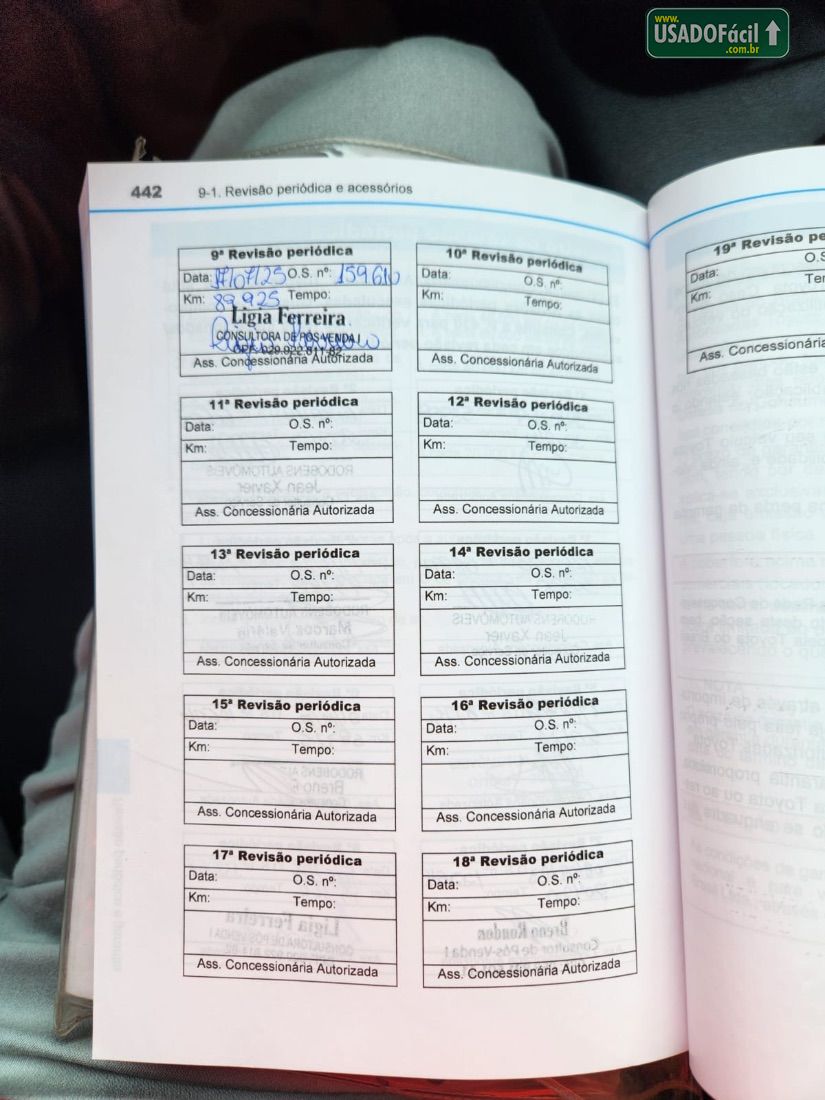 www.
USADOFácil
.com.br
442 9-1. Revisão periódica e acessórios
9ª Revisão periódica
Data: 17/07/25 O.S. nº: 159610
Km: 89925 Tempo:
Ligia Ferreira
CONSULTORA DE PÓS-VENDA I
Ass. Concessionária Autorizada
10ª Revisão periódica
Data: O.S. nº:
Km: Tempo:
Ass. Concessionária Autorizada
11ª Revisão periódica
Data: O.S. nº:
Km: Tempo:
Ass. Concessionária Autorizada
12ª Revisão periódica
Data: O.S. nº:
Km: Tempo:
Ass. Concessionária Autorizada
13ª Revisão periódica
Data: O.S. nº:
Km: Tempo:
Ass. Concessionária Autorizada
14ª Revisão periódica
Data: O.S. nº:
Km: Tempo:
Ass. Concessionária Autorizada
15ª Revisão periódica
Data: O.S. nº:
Km: Tempo:
Ass. Concessionária Autorizada
16ª Revisão periódica
Data: O.S. nº:
Km: Tempo:
Ass. Concessionária Autorizada
17ª Revisão periódica
Data: O.S. nº:
Km: Tempo:
Ass. Concessionária Autorizada
18ª Revisão periódica
Data: O.S. nº:
Km: Tempo:
Ass. Concessionária Autorizada
19ª Revisão pe
Data: O.S
Km: Ter
Ass. Concessionária